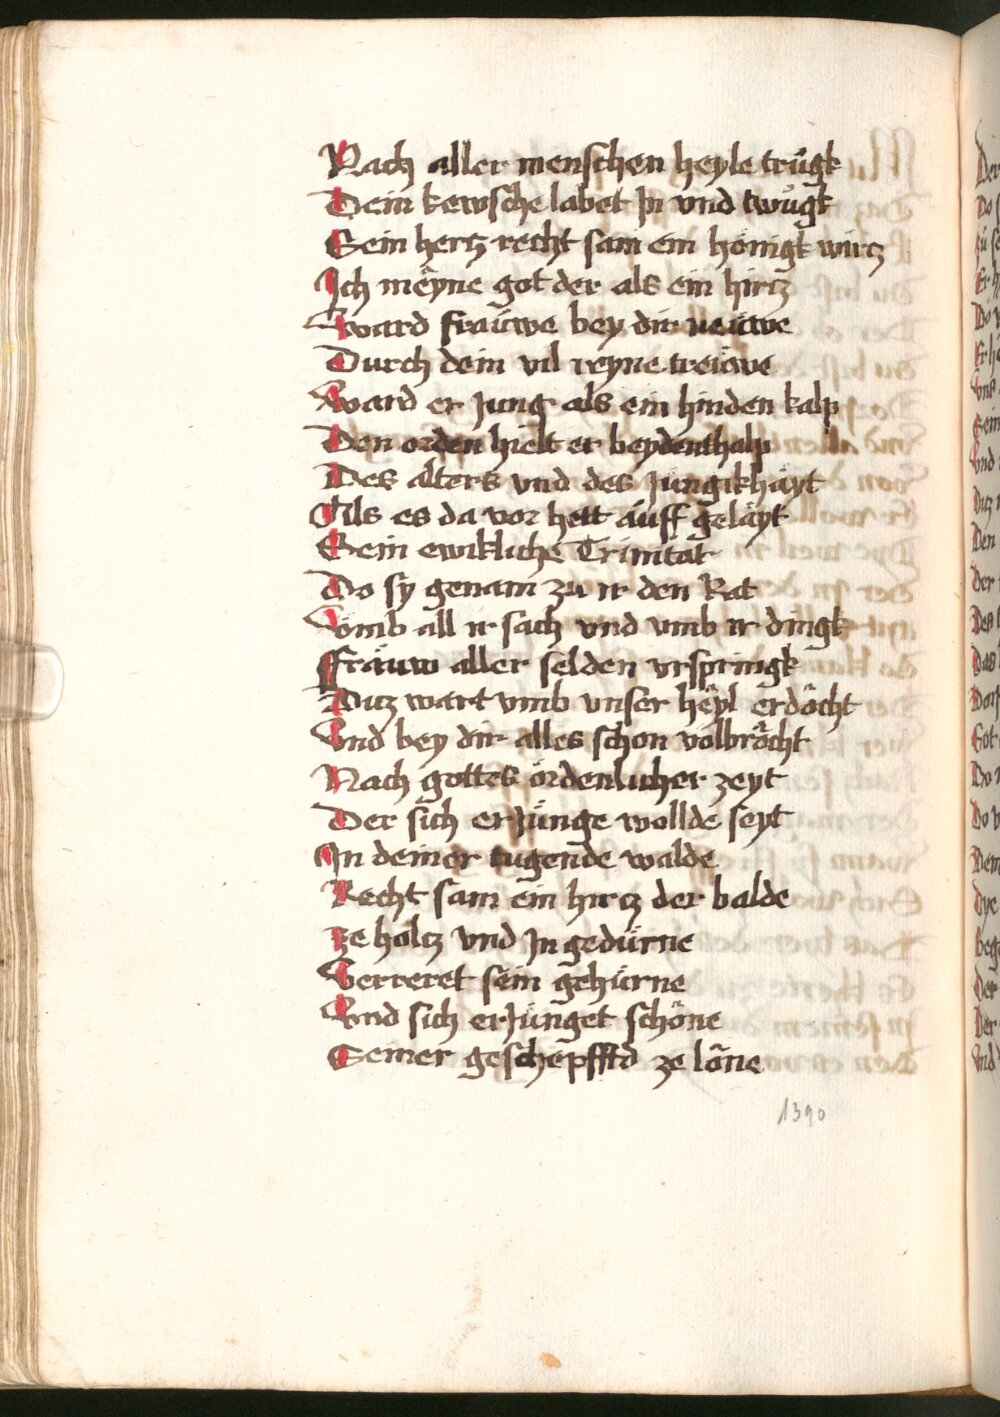 Nach aller menschen heyle trůgk
Dein kewsche labet Jn vnd twůgk
Sein hertz recht sam ein hönigk würtz
Jch mëyne got der als ein hirtz
Ward fraüwe bey dir neüwe
Durch dein vil reyne treüwe
Ward er Jung als ein hinden kalp
Den orden hielt er beydenthalp
Des alters vnd des Jüngikhäyt
Als es da vor hett aüff geläyt
Sein ewikliche Trinitat
Do sy genam zu ir den Rat
Vomb all ir sach vnd vmb ir dingk
Fräuw aller selden vrspringk
Duz wart vmb vnser hëyl erdöcht
Vnd bey dir alles schon volbröcht
Nach gottes ördenlicher zeyt
Der sich erJünge wollde seyt
Jn deiner tugende walde
Recht sam ein hirtz der balde
ze holtz vnd Jn gedürne
Verreret sein gehürne
Vnd sich erJünget schöne
Seiner geschepfftd ze löne
1390